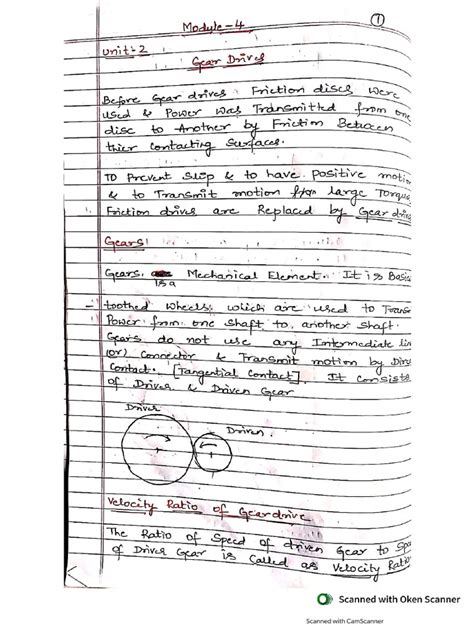 Module-4
1
Unit-2
Gear Drives
Before Gear drives Friction discs were
used & Power was Transmitted from one
disc to Another by Friction Between
thier contacting surfaces.
TO Prevent Slip & to have Positive motio
& to Transmit motion large Torque
Friction drives are Replaced by Gear drive
Gears
Gears, Mechanical Element. It is Basic
is a
- toothed wheels, which are used to Trans
Power from one shaft to another shaft.
Gears do not use any Intermediate lin
(or) Connector & Transmit motion by Dire
Contact. [Tangential Contact]. It consists
of Driver & Driven Gear
Driver
Driven.
Velocity Ratio of Gear drive
The Ratio of Speed of driven Gear to Spe
of Driver Gear is Called as Velocity Ratio
Scanned with Oken Scanner
Scanned with CamScanner